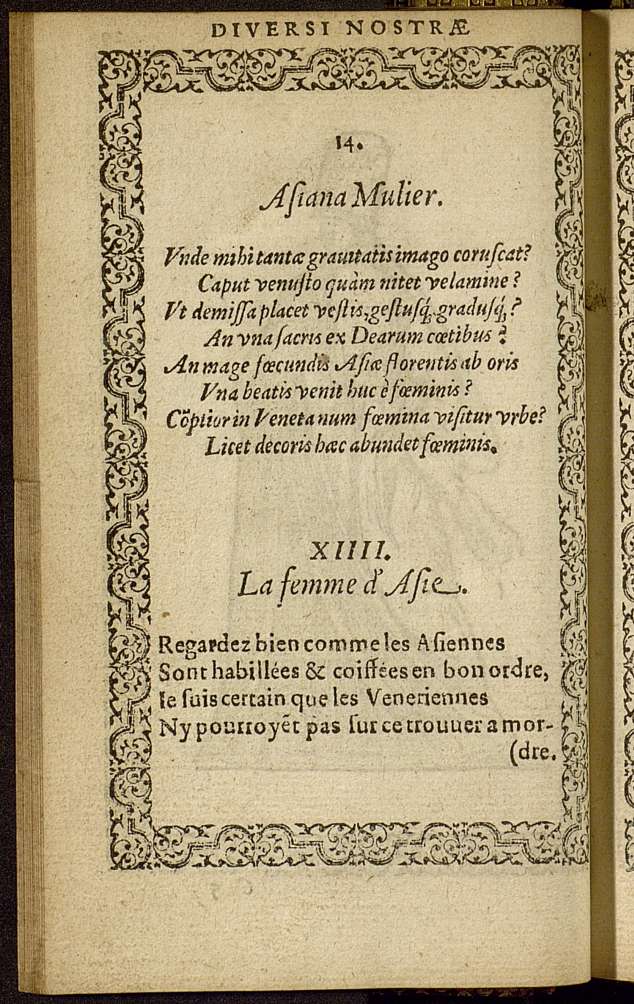 DIVERSI NOSTRÆ
14.
Aſiana Mulier.
Vnde mihi tantæ grauitatis imago coruſcat?
Caput venuſto quàm nitet velamine?
Vt demiſſa placet veſtis, geſtuſq́, graduſq́,?
An vna ſacris ex Dearum cœtibus?
An mage fœcundis Aſiæ florentis ab oris
Vna beatis venit huc è fœminis?
Cõptior in Veneta num fœmina viſitur vrbe?
Licet decoris hæc abundet fœminis.
XIIII.
La femme d'Aſie.
Regardez bien comme les Aſiennes
Sont habillées & coiffées en bon ordre,
Ie ſuis certain que les Veneriennes
Ny pourroyẽt pas ſur ce trouuer a mor-
(dre.